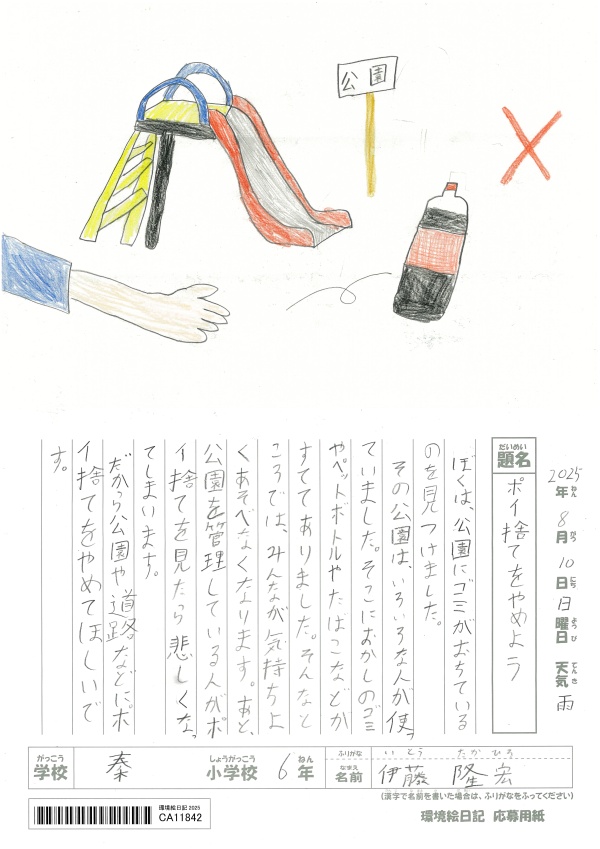 公園
2025年8月10日日曜日 天気 雨
ねん がつ にち ようび てんき
だいめい
題名 ポイ捨てをやめよう
ぼくは、公園にゴミがおちている
のを見つけました。
その公園は、いろいろな人が使っ
ていました。そこにおかしのゴミ
やペットボトルやたばこなどが
すててありました。そんなと
ころでは、みんなが気持ちよ
くあそべなくなります。あと、
公園を管理している人がポ
イ捨てを見たら悲しくなっ
てしまいます。
だから公園や道路などにポ
イ捨てをやめてほしいで
す。
がっこう しょうがっこう ねん ふりがな いとう たかひろ
学校 秦 小学校 6年 なまえ 名前 伊藤 隆宏
(漢字で名前を書いた場合は、ふりがなをふってください)
環境絵日記 2025
CA11842
環境絵日記 応募用紙